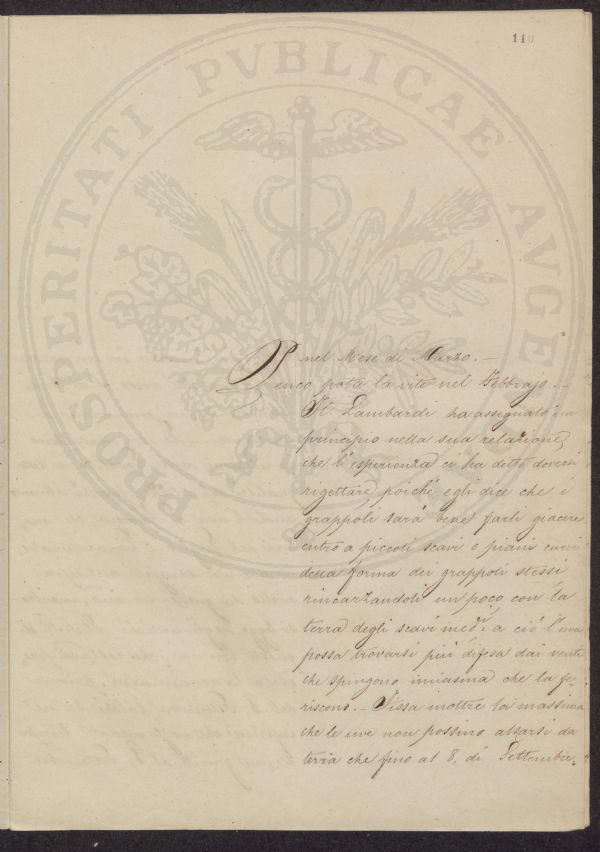 110
PROSPERITATI PVBLICAE AVGENDAE
nel Mese di Marzo. —
Penco, pota la vite nel Febbrajo. —
Il Lambardi ha assegnato un
principio nella sua relazione,
che l'esperienza ci ha detto doversi
rigettare, poiché egli dice che i
grappoli sarà bene farli giacere
entro a piccoli scavi o piani curvi
della forma dei grappoli stessi
rincarzandoli un poco con la
terra degli scavi med.i a ciò l'uva
possa trovarsi più difesa dai venti
che spingono i miasma che la fe-
riscono. — Fissa inoltre la massima
che le uve non possino alzarsi da
terra che fino al 8. di Settembre.